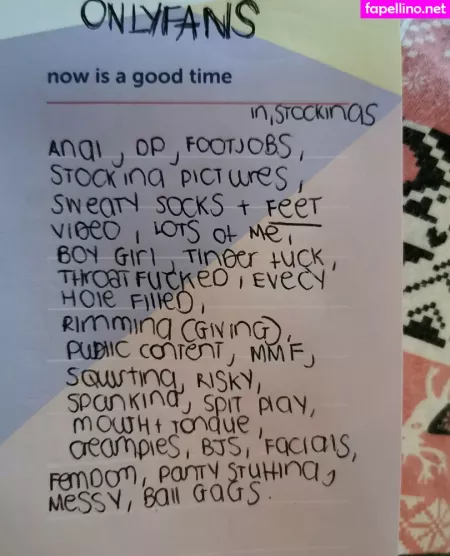 fapellino.net
ONLYFANS
now is a good time
IN, STOCKINGS
ANAl, DP, FOOTJOBS,
STOCKING PICTURES,
SWEATY SOCKS + FEET
VIDEO, LOTS Of ME,
BOY GIRL, TINDER fUCK,
THROAT FUCKED, EVERY
HOLE FILLED,
RIMMING (GIVING),
PUBLIC CONTENT, MMF,
SQUIRTING, RISKY,
SPANKING, SPIT PLAY,
MOUTH + TONGUE,
CREAMPIES, BJS, FACIALS,
FEMDOM, PANTY STUFFING,
MESSY, BAll GAGS.